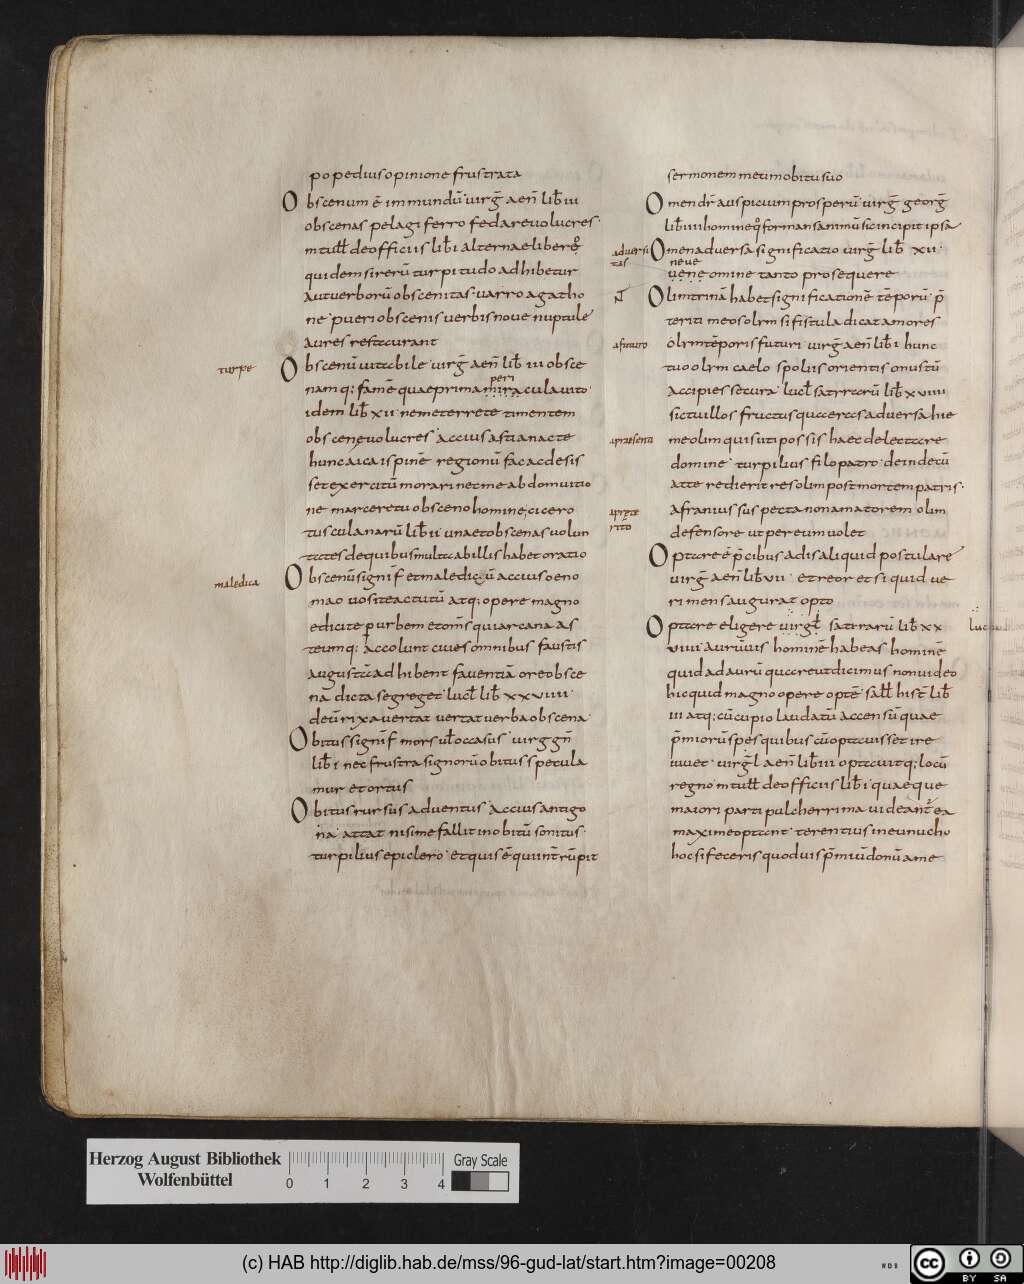 popedius opinione frustrata
Obscenum ē immundū. uirḡ aen̄ lib̄ iii
obscenas pelagi ferro fedare uolucres.
m tull̄ de officiis lib̄ i alterna e libero
quidem si rerū turpitudo adhibetur
aut uerborū obscenitas. uarro agatho
ne pueri obscenis uerbis noue nuptule
aures resttcurant
turpe
Obscenū uitabile. uirḡ aen̄ lib̄ iii obsce
peri
namq; famē quae prima miracula uito.
idem lib̄ xii. ne me terrete timentem
obscene uolucres. accius astianacte
hunc aica ispinē regionū fac ac desis
set exercitū morari net me ab domuitio
ne marceretu obsceno homine; cicero
tusculanarū lib̄ ii una et obscenas uolun
tates de quibus multa ab illis habet oratio
maledica
Obscenū signif̄ et maledicū accius oeno
mao uosite actutū atq; opere magno
edicite per urbem et om̄s qui arcana as
teumq; accolunt ciues omnibus faustis
augusta adhibent fauentiā ore obsce
na dicta segreget. lucil̄ lib̄ xxviiii.
deū rixa uertat uertat uerba obscena.
Obitus signif̄ mors ul̄ occasus. uirg gn̄
lib̄ i nec frustra signorū obitus specula
mur et ortus
Obitus rursus aduentus. accius antigo
na. attat nisi me fallit in obitū sonitus.
turpilius epiclero. et quis ē qui int̄rūpit
sermonem meum obitu suo
Omen dr̄ auspicium prosperū uirḡ georḡ
lib̄ iiii homineq; formans animū sic incipit ipsa
aduersi
tas
Omen aduersa significatio uirḡ lib̄ xii.
neue
uene omine tanto prosequere
Olim trinā habet significationē tēporū p̄
teriti me osolym si fistula dicat amores
a futuro
olym tēporis futuri uirḡ aen̄ lib̄ i hunc
tu o olym caelo spoliis orientis onustū
accipies secura. lucil̄ satyrarū lib̄ xviiii
sic tu illos fructus quaeras aduersa hie
a praesenti
me olim qui uti possis haec delectare
domine. turpilius filopatro. deindecū
atte redierit res olim post mortem patris.
a prete
rito
afranius suspecta non amatorem olim
defensore ut pereum uolet
Optare ē p̄cibus adis aliquid postulare
uirḡ aen̄ lib̄ vii. et reor et si quid ue
ri mens augurat opto
Optare eligere uirgl̄ satirarū lib̄ xx
viiii auruuis hominē habeas hominē
quid ad aurū quareut dicimus non uideo
hic quid magno opere optē. sall̄ hist̄ lib̄
iii atq; cū cupio laudatū accensū quae
p̄miorū spes quibus cū optauisset ire
uiuet. uirgl̄ aen̄ lib̄ iii optauitq; locū
regno. m tull̄ de officiis lib̄ i. quaeque
maiori parti pulcherrima uideant̄ ea
maxime optant. terentius in eunucho
hoc si feceris quod uis p̄miū donū a me
Herzog August Bibliothek
Wolfenbüttel
0 1 2 3 4
Gray Scale
(c) HAB http://diglib.hab.de/mss/96-gud-lat/start.htm?image=00208
WDB
cc BY SA